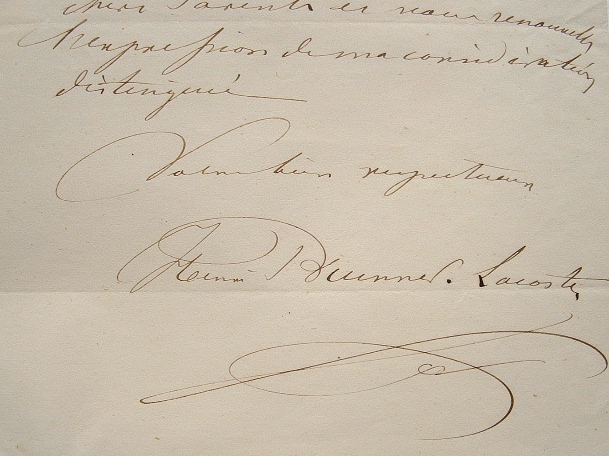 chers Parents et vous renouveller
l'expression de ma considération
distinguée
Votre bien respectueux
Henri Brunner. Lacoste